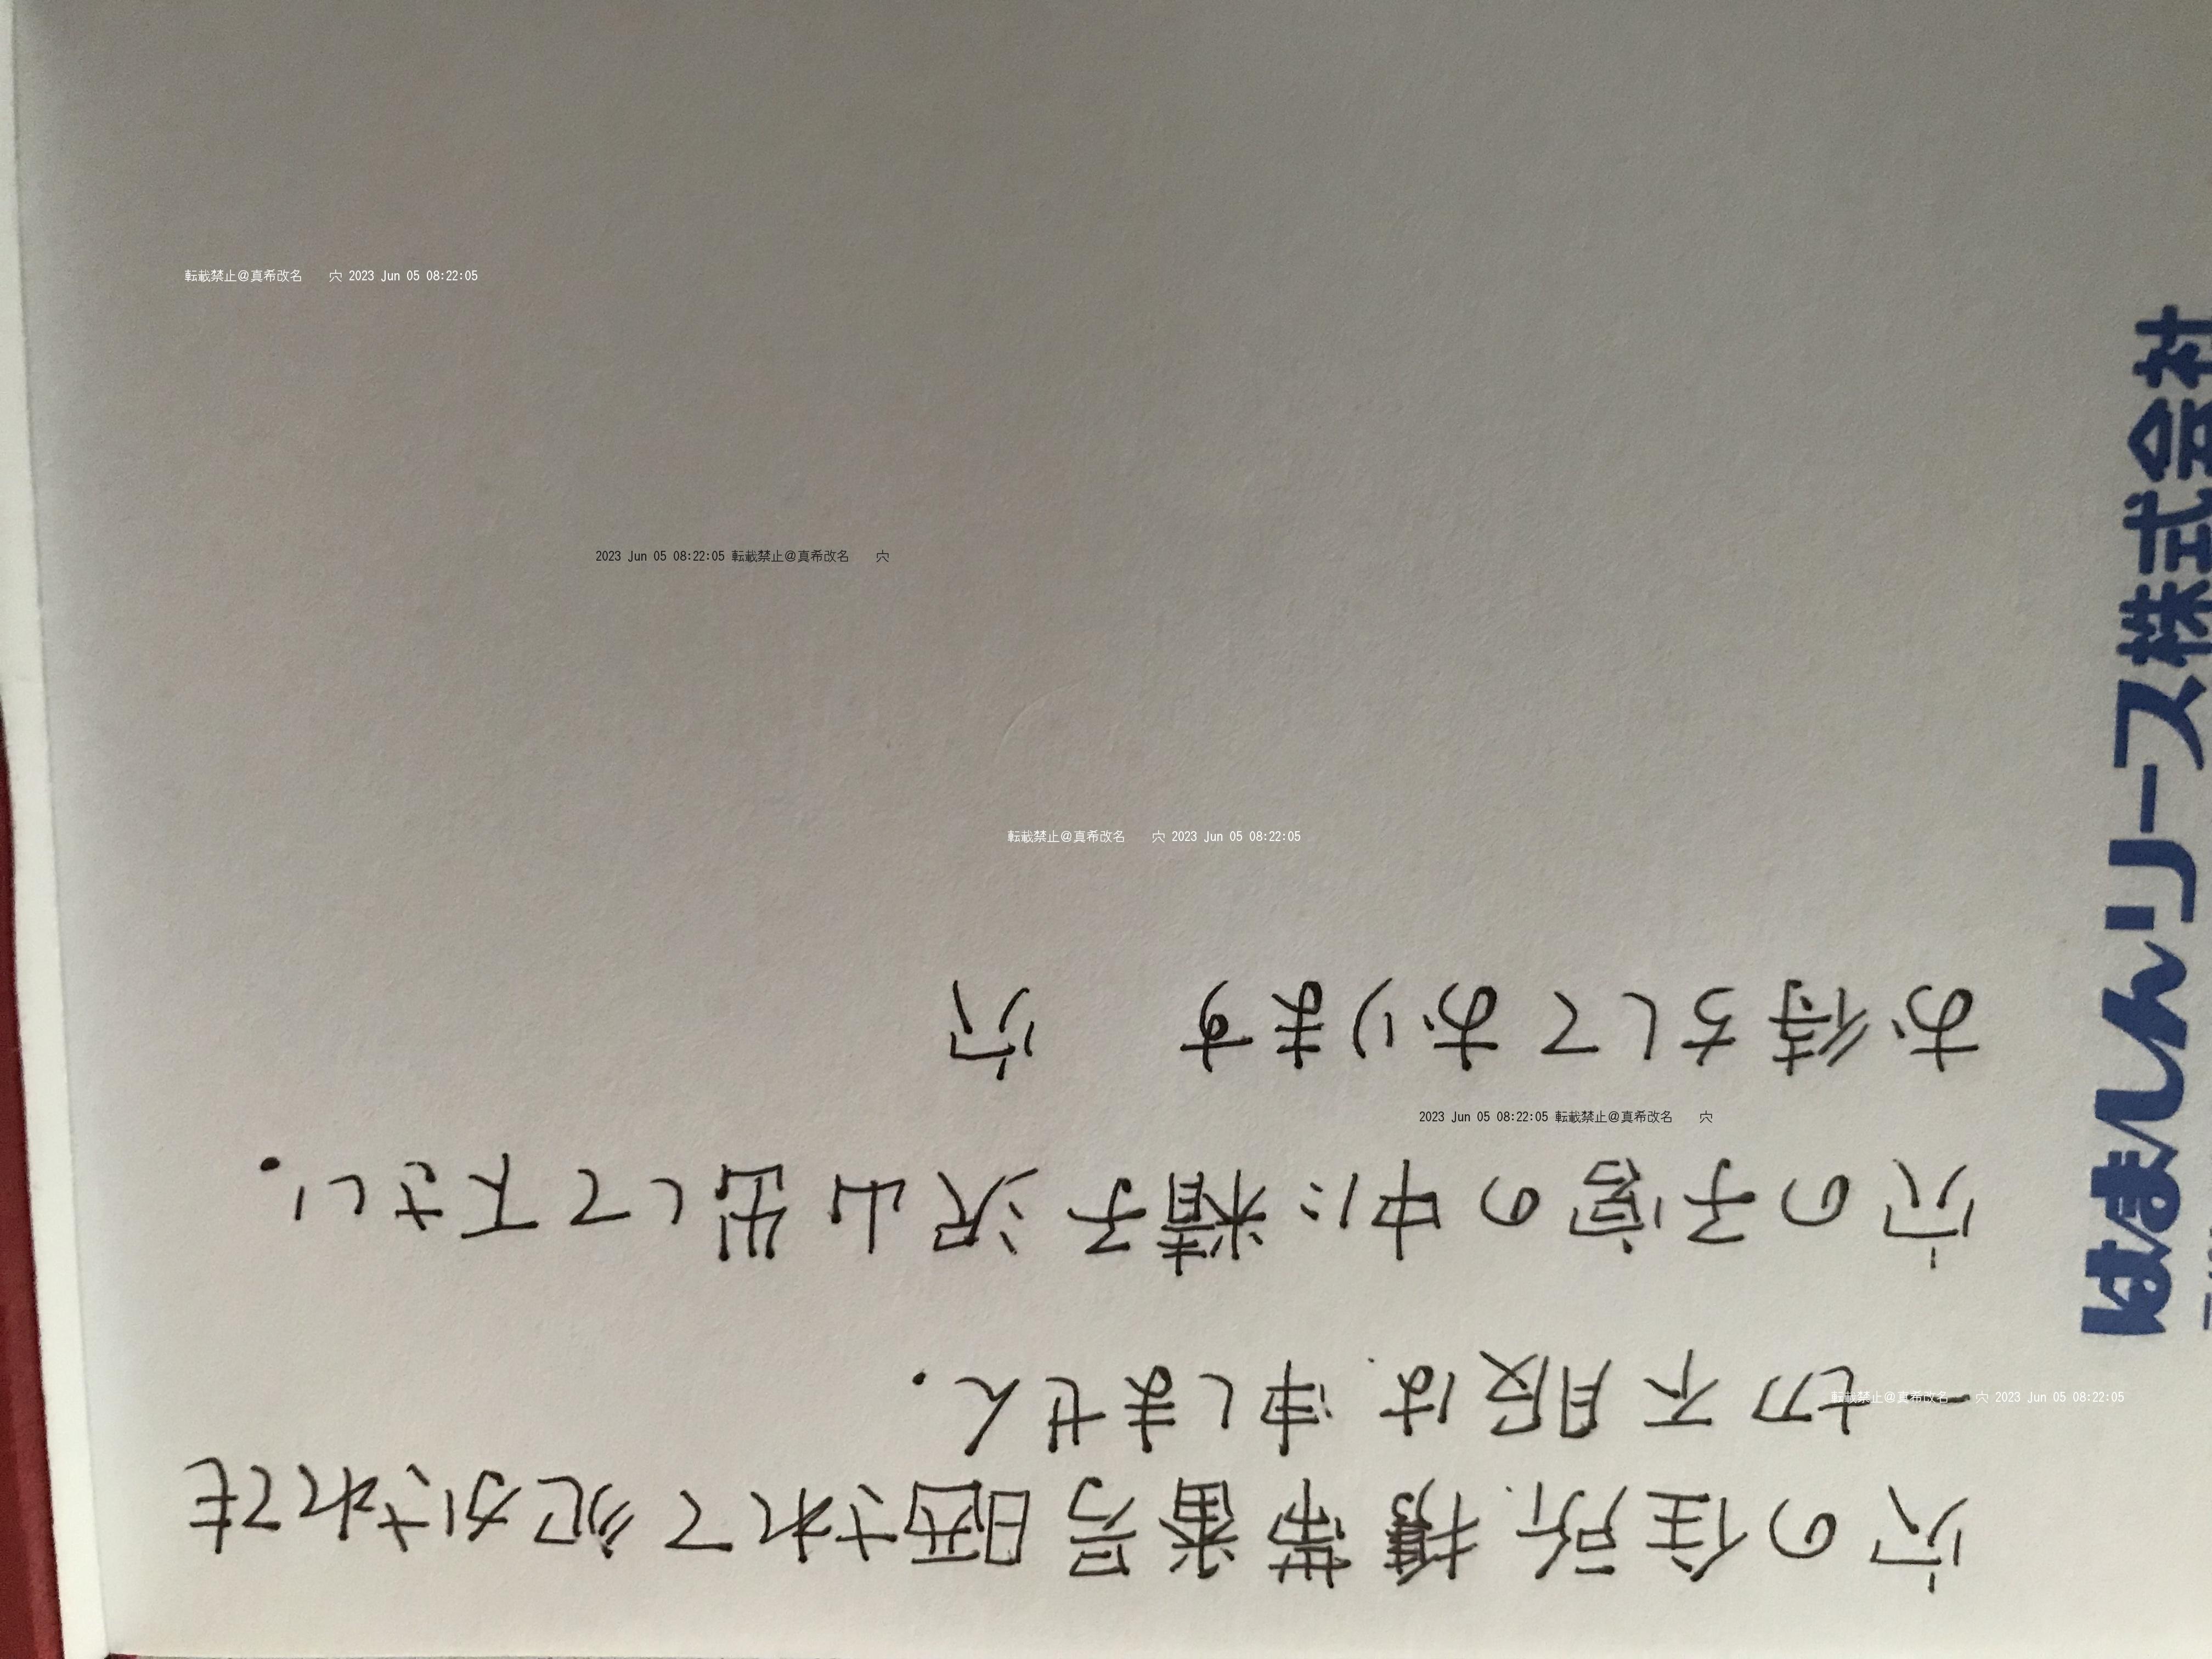 穴の住所.携帯番号晒されて犯かされても
一切不服は申しません.
穴の子宮の中に精子沢山出して下さい.
お待ちしております　穴
はましんリース株式会社
転載禁止@真希改名　穴 2023 Jun 05 08:22:05
2023 Jun 05 08:22:05 転載禁止@真希改名　穴
転載禁止@真希改名　穴 2023 Jun 05 08:22:05
2023 Jun 05 08:22:05 転載禁止@真希改名　穴
転載禁止@真希改名　穴 2023 Jun 05 08:22:05